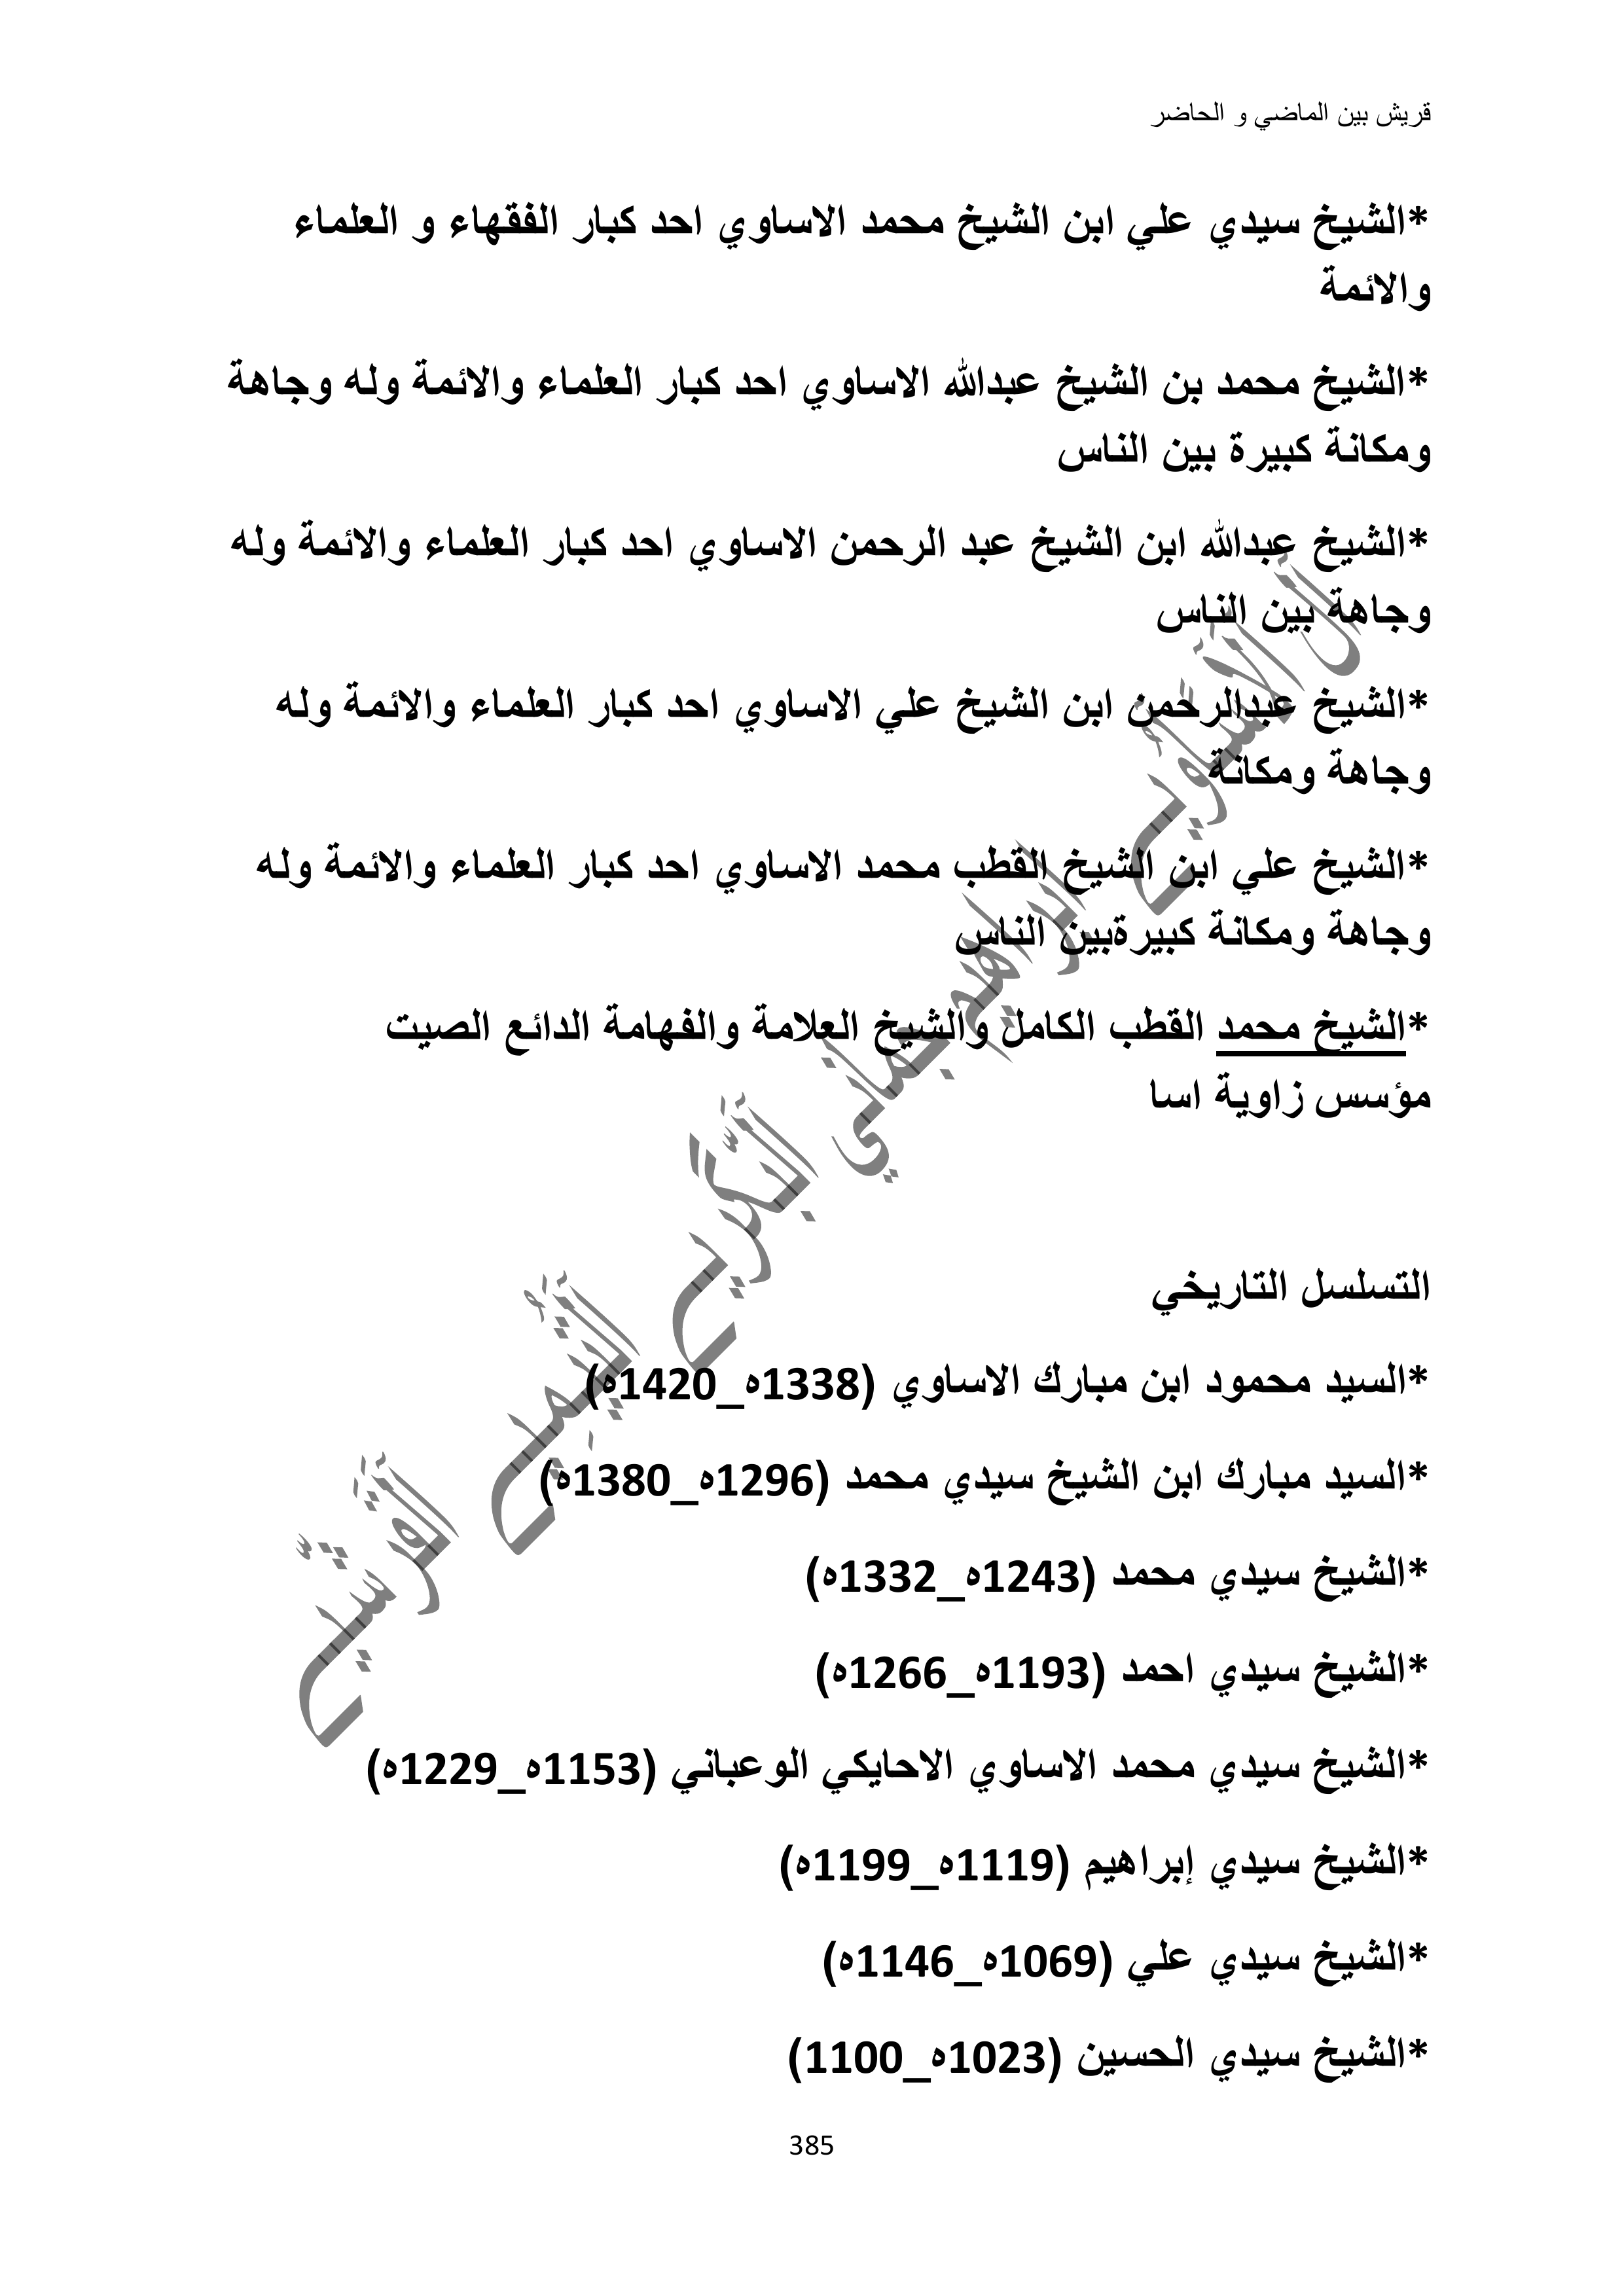 قريش بين الماضي و الحاضر
*الشيخ سيدي علي ابن الشيخ محمد الاساوي احد كبار الفقهاء و العلماء
والائمة
*الشيخ محمد بن الشيخ عبدالله الاساوي احد كبار العلماء والائمة وله وجاهة
ومكانة كبيرة بين الناس
*الشيخ عبدالله ابن الشيخ عبد الرحمن الاساوي احد كبار العلماء والائمة وله
وجاهة بين الناس
*الشيخ عبدالرحمن ابن الشيخ علي الاساوي احد كبار العلماء والائمة وله
وجاهة ومكانة
*الشيخ علي ابن الشيخ القطب محمد الاساوي احد كبار العلماء والائمة وله
وجاهة ومكانة كبيرةبين الناس
*الشيخ محمد القطب الكامل والشيخ العلامة والفهامة الدائع الصيت
مؤسس زاوية اسا
التسلسل التاريخي
*السيد محمود ابن مبارك الاساوي (1338ه_1420ه)
*السيد مبارك ابن الشيخ سيدي محمد (1296ه_1380ه)
*الشيخ سيدي محمد (1243ه_1332ه)
*الشيخ سيدي احمد (1193ه_1266ه)
*الشيخ سيدي محمد الاساوي الاحايكي الوعباني (1153ه_1229ه)
*الشيخ سيدي إبراهيم (1119ه_1199ه)
*الشيخ سيدي علي (1069ه_1146ه)
*الشيخ سيدي الحسين (1023ه_1100)
385